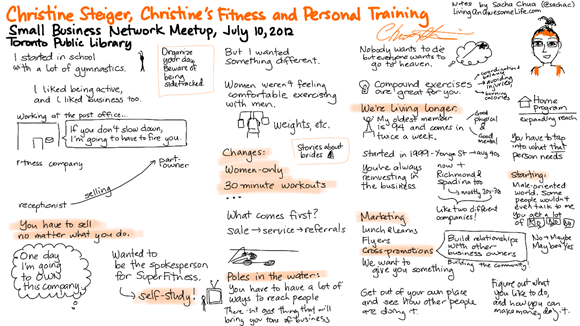 Christine Steiger, Christine's Fitness and Personal Training
Small Business Network Meetup, July 10, 2012
Toronto Public Library
Notes by Sacha Chua (@sachac)
LivingAnAwesomeLife.com
I started in school
with a lot of gymnastics.
I liked being active,
and I liked business too.
Organize
your day.
Beware of
being
sidetracked.
Working at the post office...
If you don't slow down,
I'm going to have to fire you.
fitness company
part-
owner
selling
receptionist
You have to sell
no matter what you do.
One day
I'm going
to OWN
this company.
Wanted to
be the spokesperson
for SuperFitness.
self-study!
But I wanted
something different.
Women weren't feeling
comfortable exercising
with men.
Weights, etc.
Stories about
brides
Changes:
Women-only
30 minute workouts
...
What comes first?
Sale → service → referrals
Poles in the water:
You have to have a lot
of ways to reach people
There isn't one thing that will
bring you tons of business
Nobody wants to die
but everyone wants to
go to heaven.
Compound exercises
are great for you.
coordination
balance
avoiding
injuries
burning
calories
We're living longer.
My oldest member
is 94 and comes in
twice a week.
Good
physical
&
Good
mental
Started in 1999 - Yonge St
avg 40s
You're always
reinvesting in
the business
now +
Richmond &
Spadina too
mostly 20s-30s
Like two different
companies!
Marketing
Lunch & Learns
Flyers
Cross-promotions
We want to
give you something
Build relationships
with other
business owners
Building the community!
Get out of your own place
and see how other people
are doing it.
Home
program
expanding reach
You have to tap
into what that
person needs
Starting:
Male-oriented
world. Some
people wouldn't
even talk to me
You get a lot
of NO NO NO
No → Maybe
Maybe → Yes
Figure out what
you like to do,
and how you can
make money doing it.